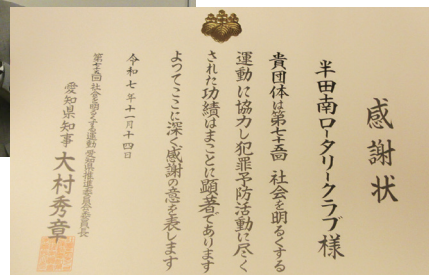 感謝状
半田南ロータリークラブ様
貴団体は第七十五回 社会を明るくする
運動に協力し犯罪予防活動に尽く
された功績はまことに顕著であります
よってここに深く感謝の意を表します
令和七年十一月十四日
第七十五回社会を明るくする運動愛知県推進委員会委員長
愛知県知事 大村秀章